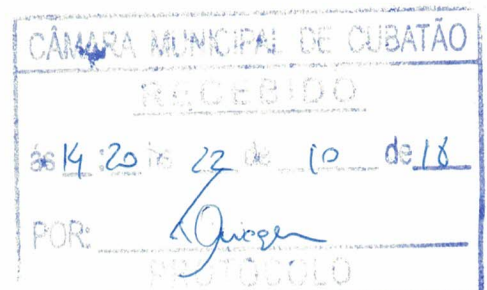 CÂMARA MUNICIPAL DE CUBATÃO
RECEBIDO
ás 14:20 hs 22 de 10 de 18
POR:
PROTOCOLO